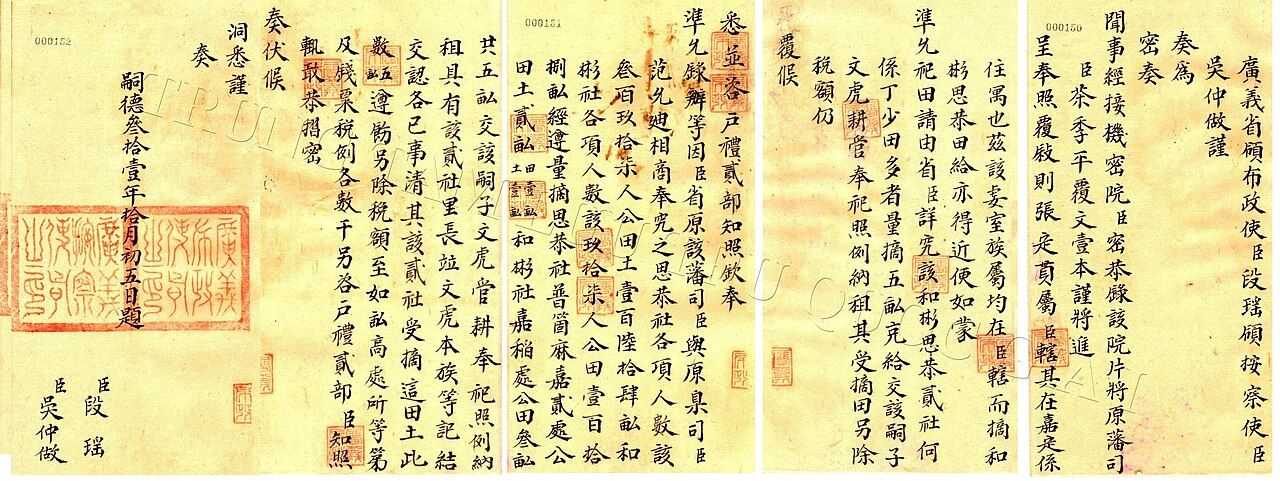 廣義省領布政使臣段瑶領按察使臣
吳仲做謹
奏爲
密奏
聞事經接機密院臣密恭錄該院片將原藩司
臣茶季平覆文壹本謹將進
呈奉照覆敍則張定貫屬臣轄其在嘉定係
住寓也茲該妾室族屬均在臣轄而摘和
彬思恭田給亦得近便如蒙
準允祀田請由省臣詳究該和彬思恭貳社何
係丁少田多者量摘五畝充給交該嗣子
文虎耕管奉祀照例納租其受摘田另除
稅額仍
覆候
悉並咨戶禮貳部知照欽奉
準允錄辦等因臣省原該藩司臣與原臬司臣
范允迪相商奉究之思恭社各項人數該
叁百玖拾柒人公田土壹百陸拾肆畝和
彬社各項人數該玖拾柒人公田壹百拾
捌畝經遵量摘思恭社普箇麻嘉貳處公
田土貳畝田壹畝土壹畝和彬社嘉稲處公田叁畝
共五畝交該嗣子文虎管耕奉祀照例納
租具有該貳社里長竝文虎本族等記結
交認各已事清其該貳社受摘這田土此
數五畝遵飭另除稅額至如畝高處所等第
及錢粟稅例各數干另咨戶禮貳部臣知照
輒敢恭摺密
奏伏候
洞悉謹
奏
嗣德叁拾壹年拾月初五日題
臣段瑶
臣吳仲做
000150
000151
000152